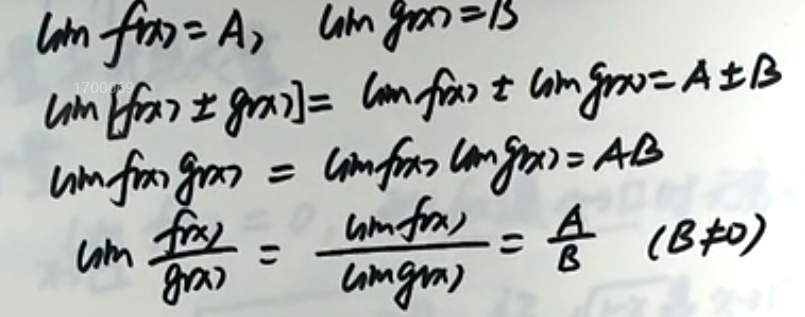 lim f(x) = A, lim g(x) = B
lim [f(x) ± g(x)] = lim f(x) ± lim g(x) = A ± B
lim f(x) g(x) = lim f(x) lim g(x) = AB
lim f(x)/g(x) = lim f(x)/lim g(x) = A/B (B≠0)